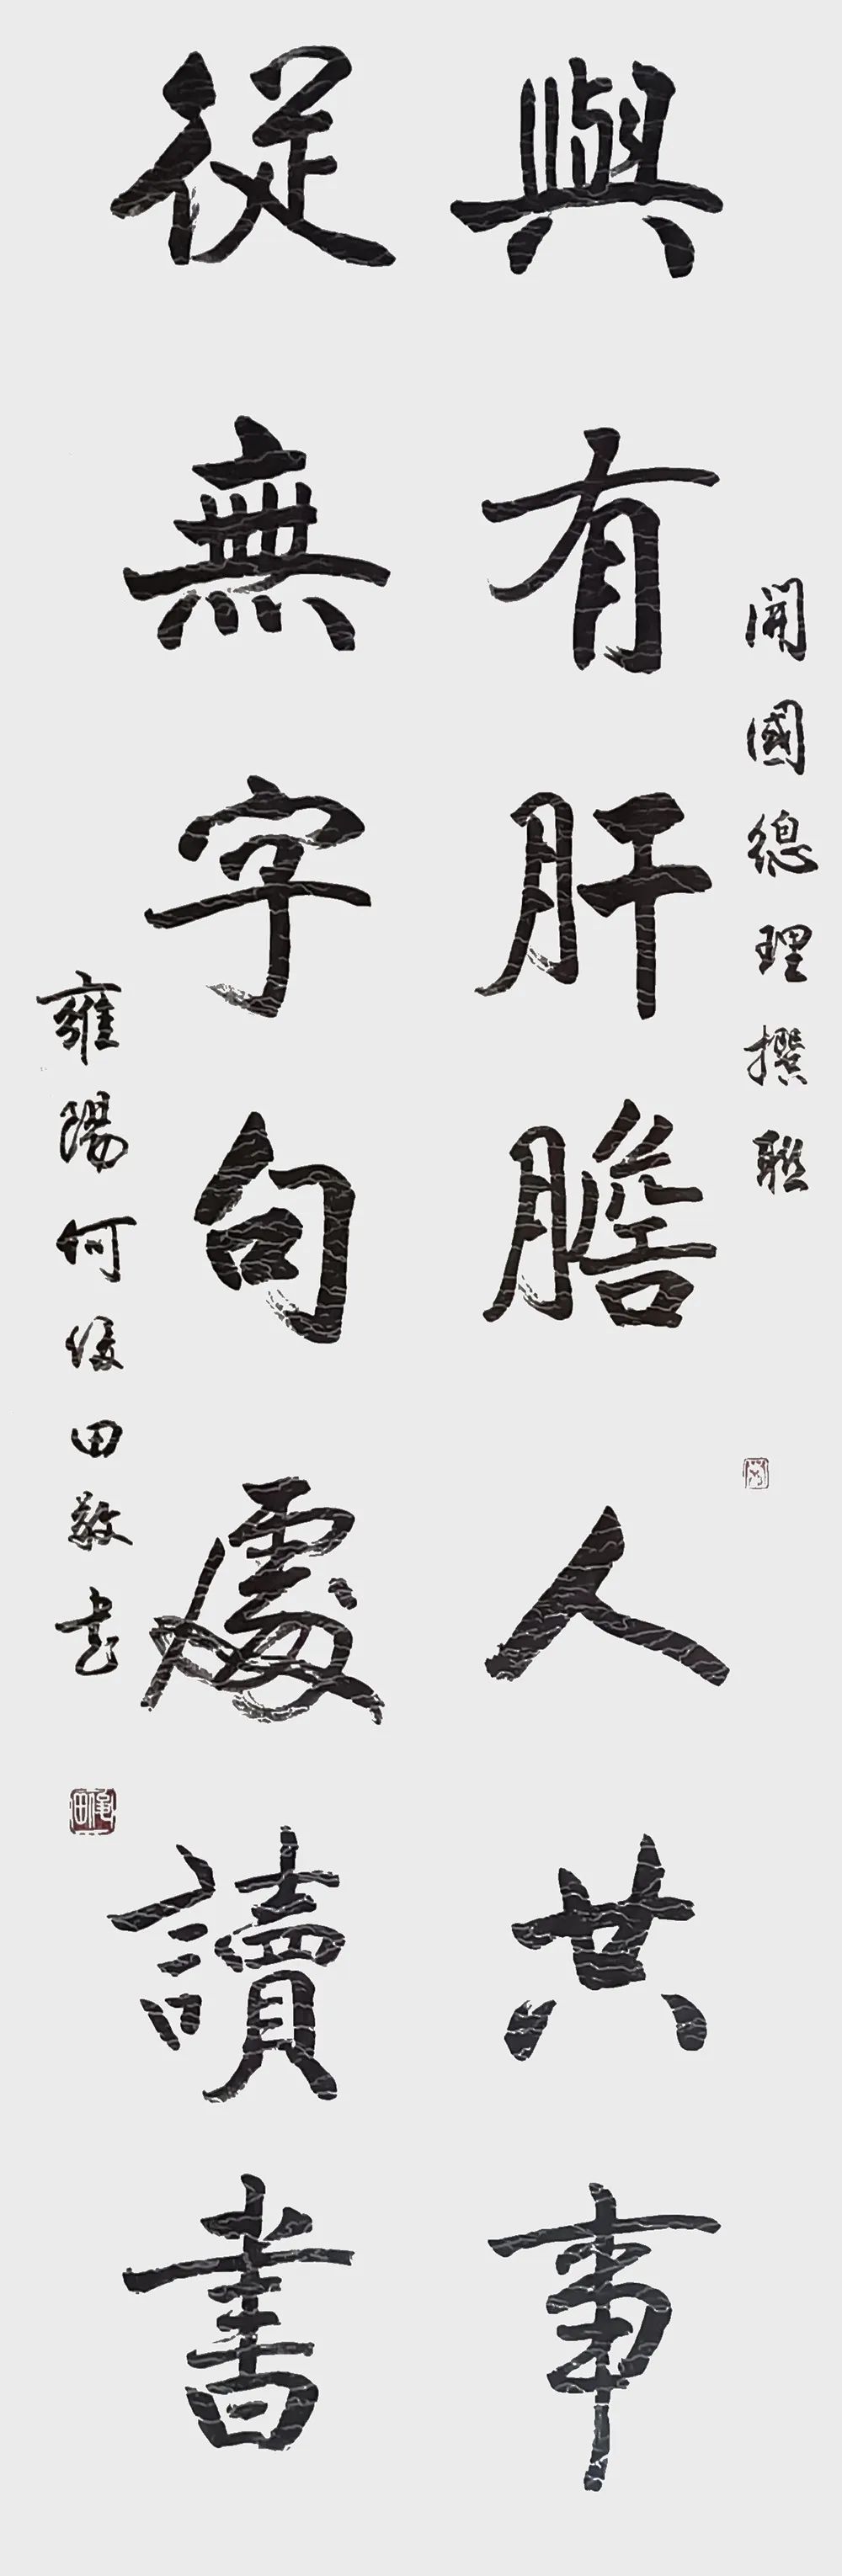 開國總理撰聯
與有肝膽人共事
從無字句處讀書
雍陽何俊田敬书